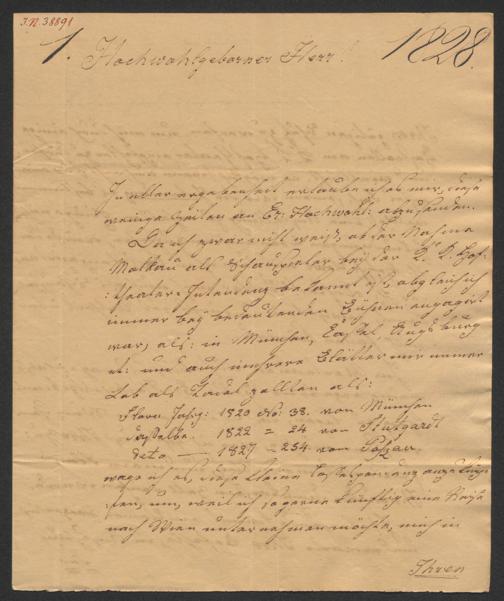 I.N. 38891
1. Hochwohlgeborner Herr! 1828.
In aller ergebenheit erlaube ich es mir, diese
wenige Zeilen an Er: Hochwohl: abzusenden.
Da ich zwar nicht weiß, ob der Nahme
als Schauspieler bey der K. K. Hof-
:theater-Intendanz bekannt ist, obgleich ich
immer bey bedeutenden Bühnen engagirt
war, als: in München, Cassel, Augsburg
et: und auch mehrere Blätter mir immer
Lob als Tadel zollten als:
Flora Jahrg: 1820 No: 38. von München
1822 = 24 von Stuttgardt
deto — 1827 - 254. von
wage ich es, diese kleine
um, weil ich so gerne künftig eine Reise
nach Wien unternehmen möchte, mich in
Ihren